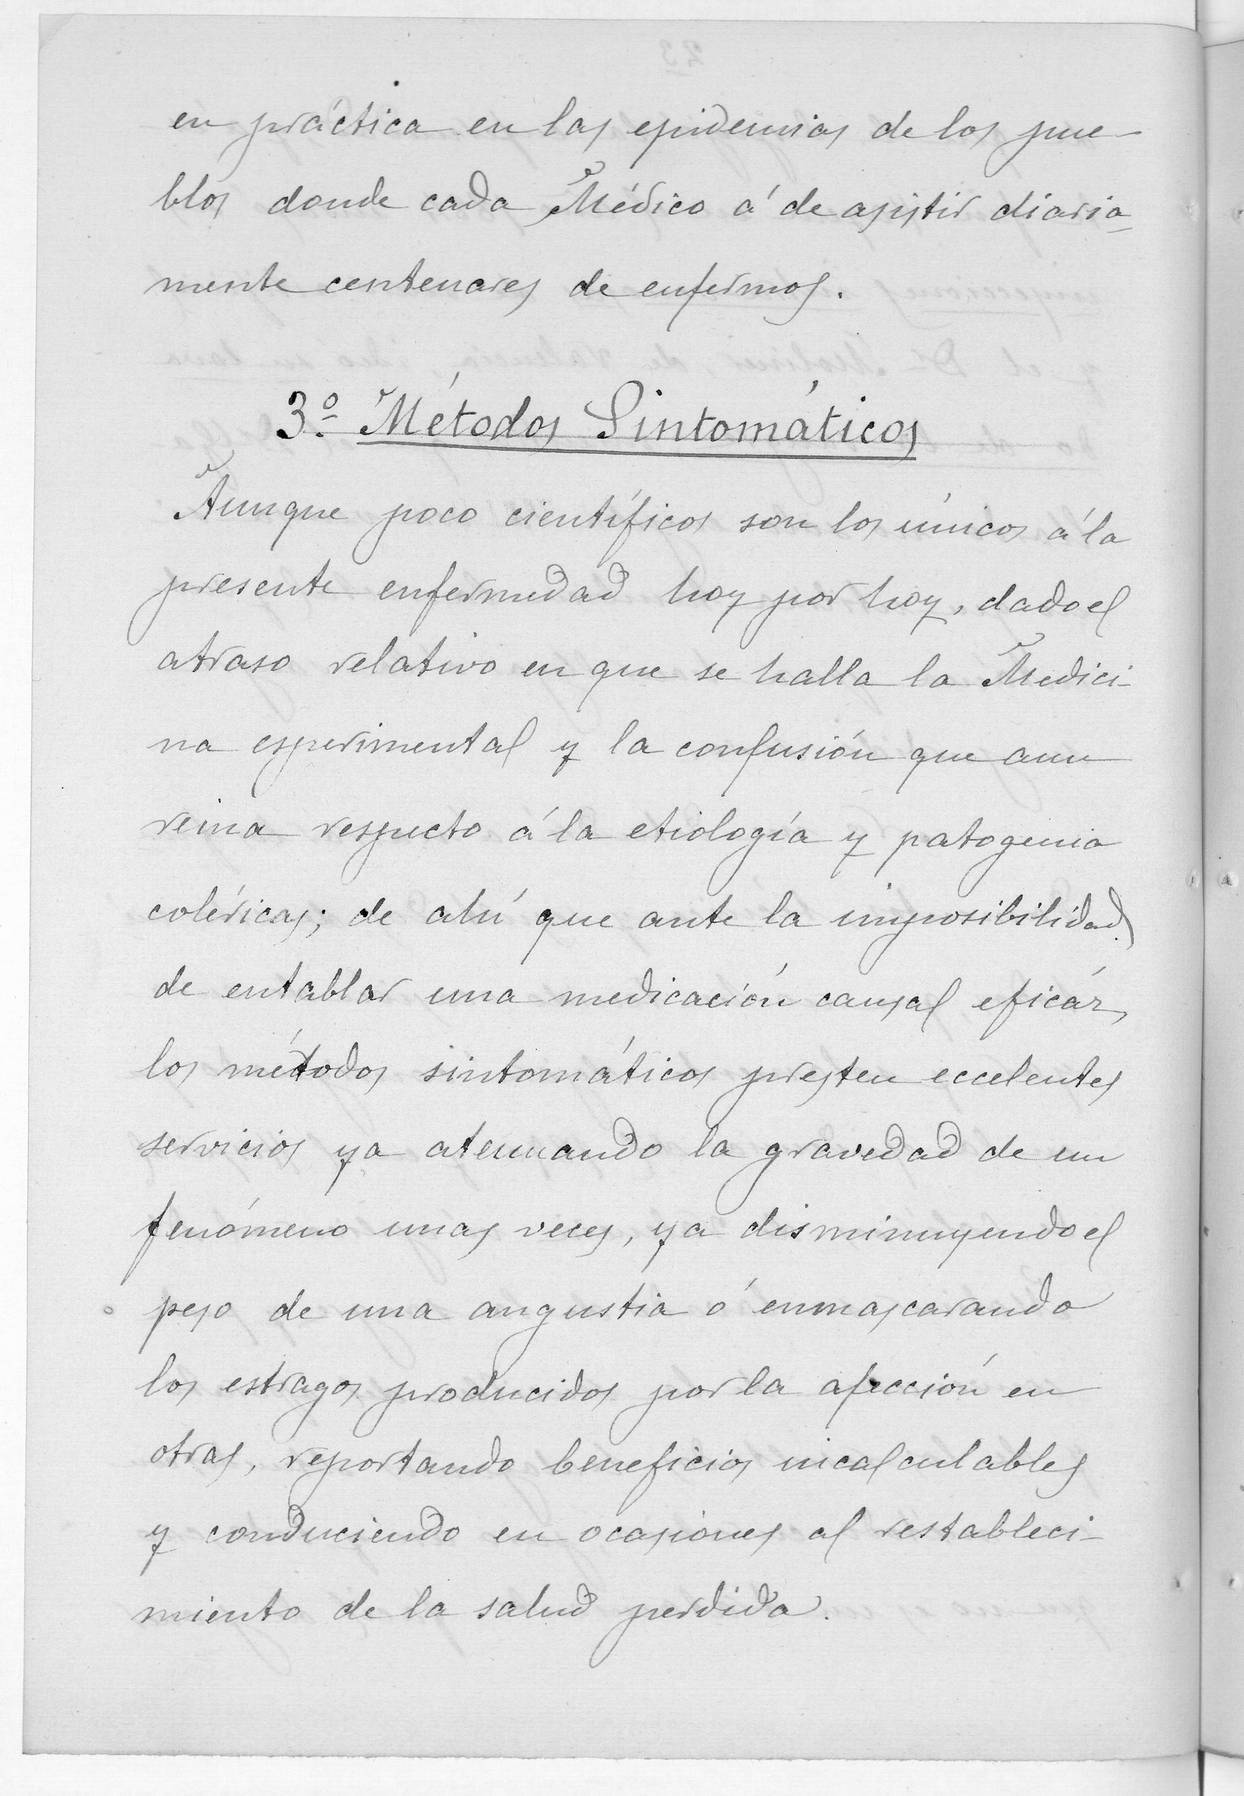 en práctica en las epidemias de los pue-
blos donde cada Médico á de asistir diaria-
mente centenares de enfermos.
3º Métodos Sintomáticos
Aunque poco científicos son los únicos á la
presente enfermedad hoy por hoy, dado el
atraso relativo en que se halla la Medici-
na esperimental y la confusión que aun
reina respecto á la etiología y patogenia
coléricas; de ahí que ante la imposibilidad
de entablar una medicación causal eficáz,
los métodos sintomáticos presten eccelentes
servicios ya atenuando la gravedad de un
fenómeno unas veces, ya disminuyendo el
peso de una angustia ó enmascarando
los estragos producidos por la afección en
otras, reportando beneficios incalculables
y conduciendo en ocasiones al restableci-
miento de la salud perdida.